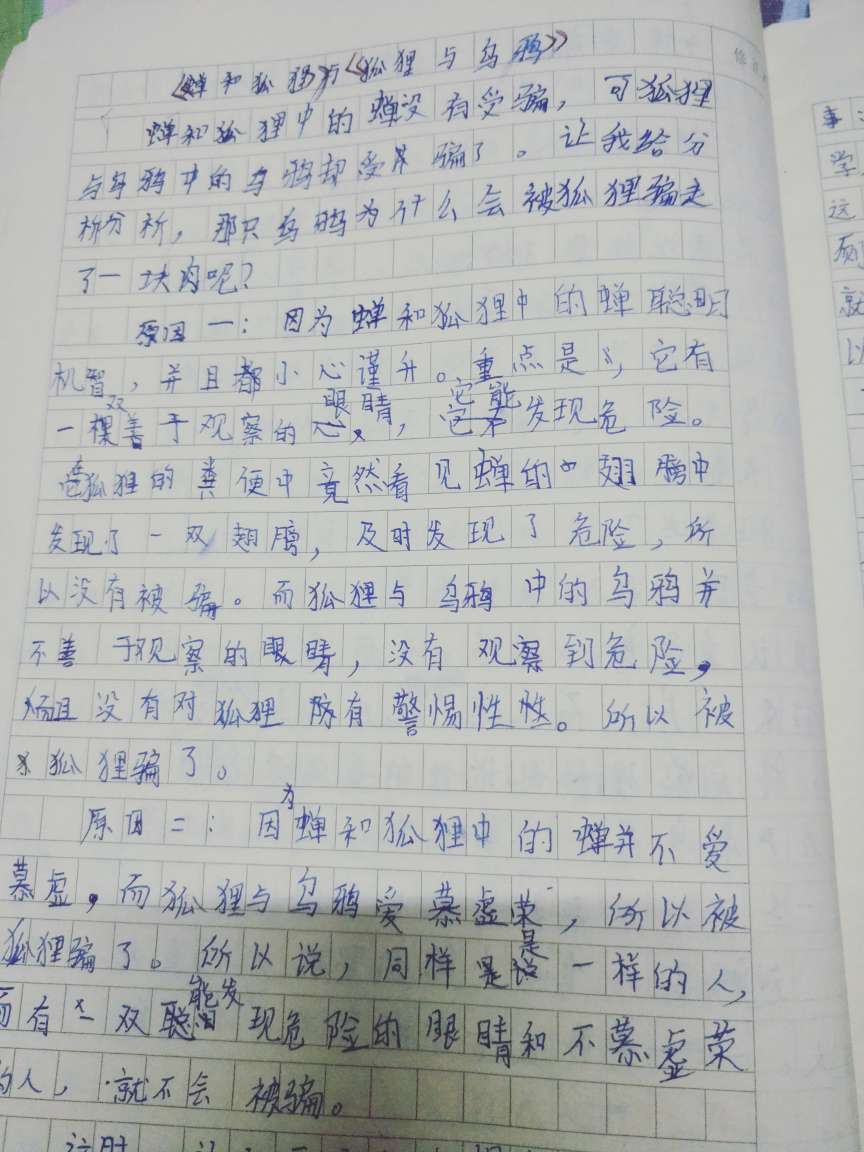 《蝉和狐狸》与《狐狸与乌鸦》
蝉和狐狸中的蝉没有受骗，可狐狸
与乌鸦中的乌鸦却受骗了。让我给分
析分析，那只乌鸦为什么会被狐狸骗走
了一块肉呢？
原因一：因为蝉和狐狸中的蝉聪明
机智，并且都小心谨升。重点是，它有
一双善于观察的眼睛，它能发现危险。
狐狸的粪便中竟然看见蝉的翅膀中
发现了一双翅膀，及时发现了危险，所
以没有被骗。而狐狸与乌鸦中的乌鸦并
不善于观察的眼睛，没有观察到危险，
而且没有对狐狸有警惕性性。所以被
狐狸骗了。
原因二：因为蝉和狐狸中的蝉并不爱
慕虚，而狐狸与乌鸦爱慕虚荣，所以被
狐狸骗了。所以说，同样是一样的人，
而有一双能发现危险的眼睛和不慕虚荣
的人，就不会被骗。
修
事
学
这
而
就
以